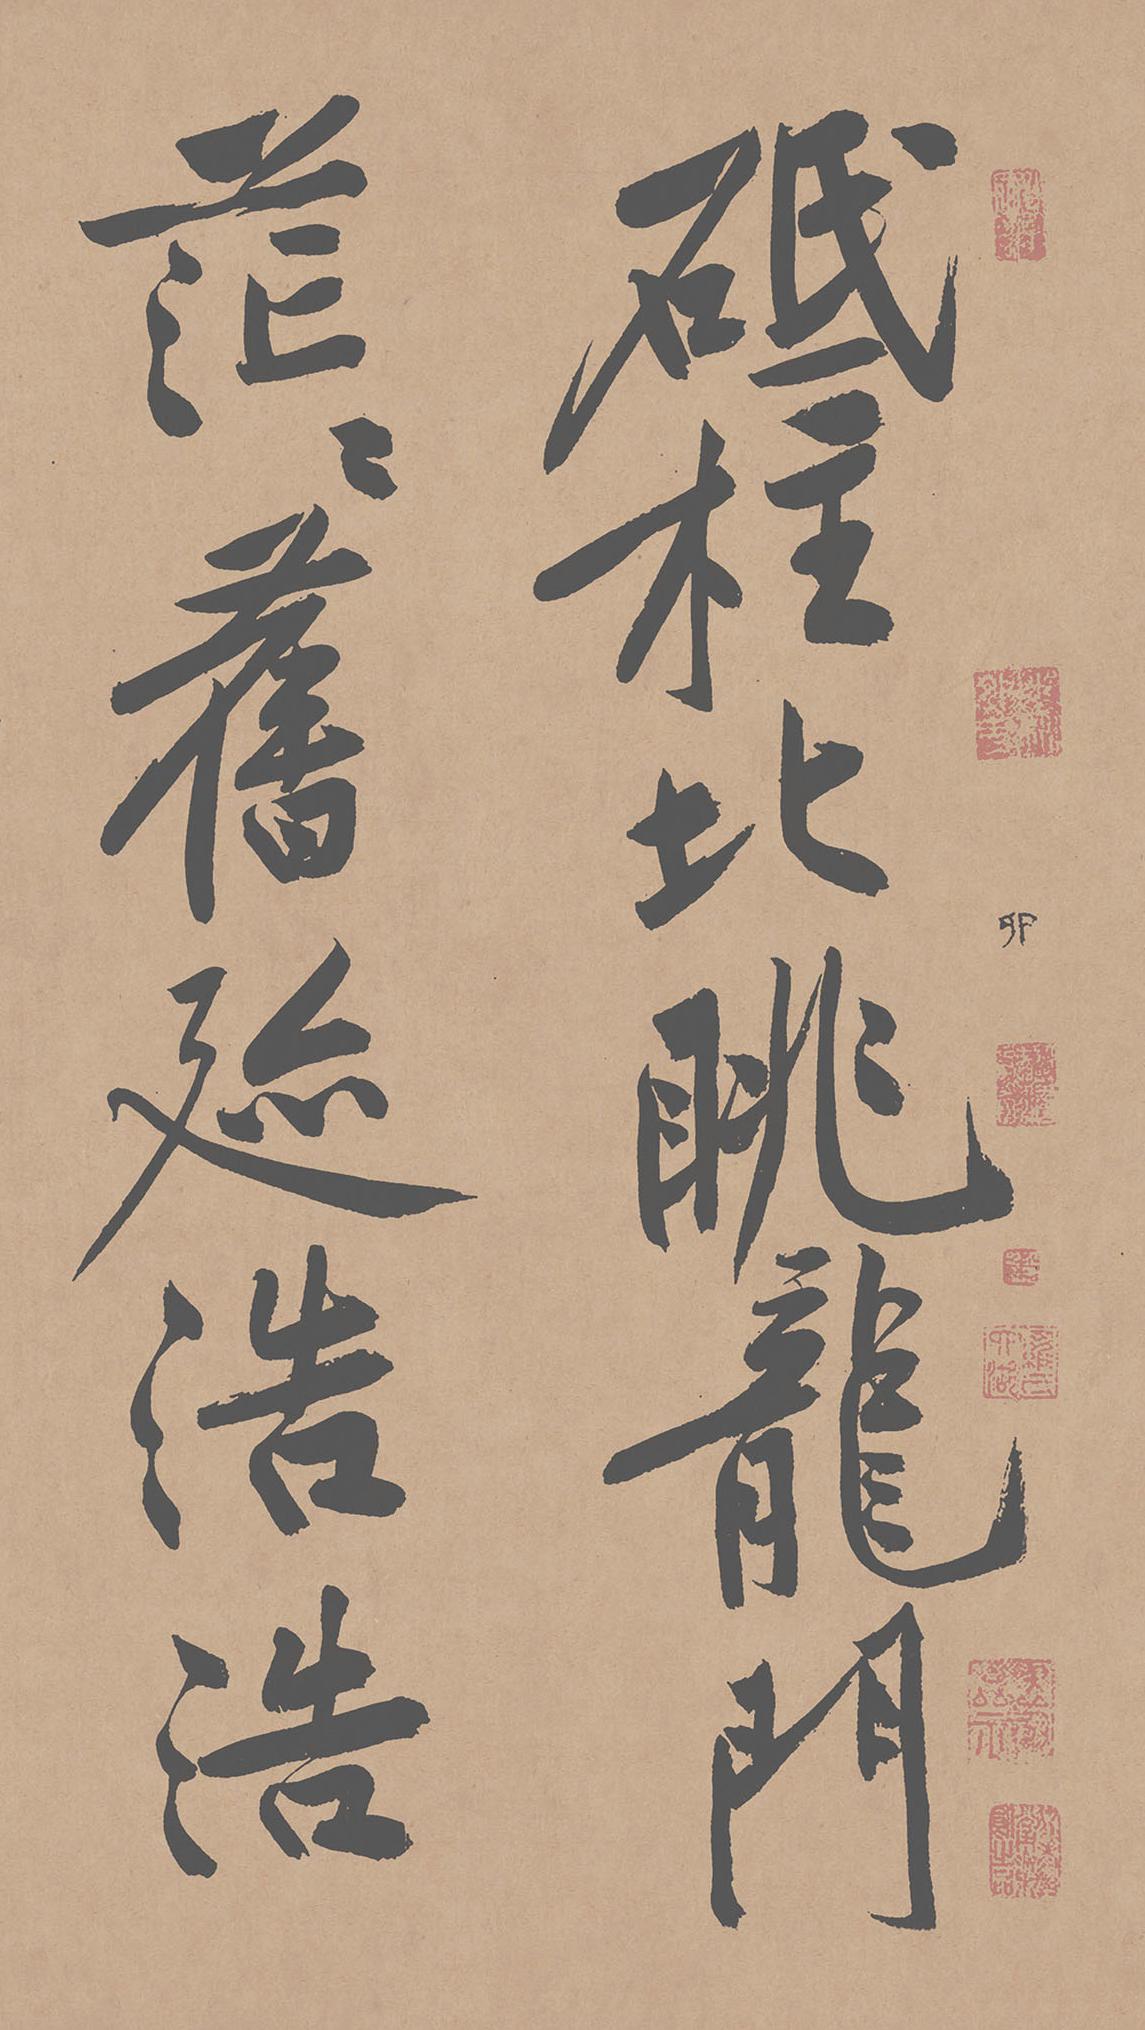 卯
砥柱北眺龍門
茫々舊迹浩浩